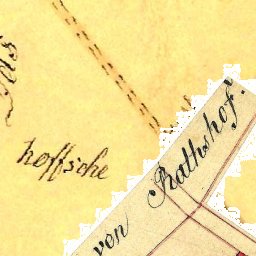 hoffsche
von Rathshof.